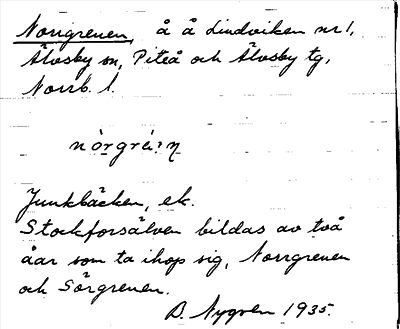 Norrgrenen, å å Lindviken nr 1,
Älvsby sn, Piteå och Älvsby tg,
Norrb. l.
Junkbäcken, ek.
Stockforsälven bildas av två
åar som ta ihop sig, Norrgrenen
och Sörgrenen.
D. Nygren 1935.